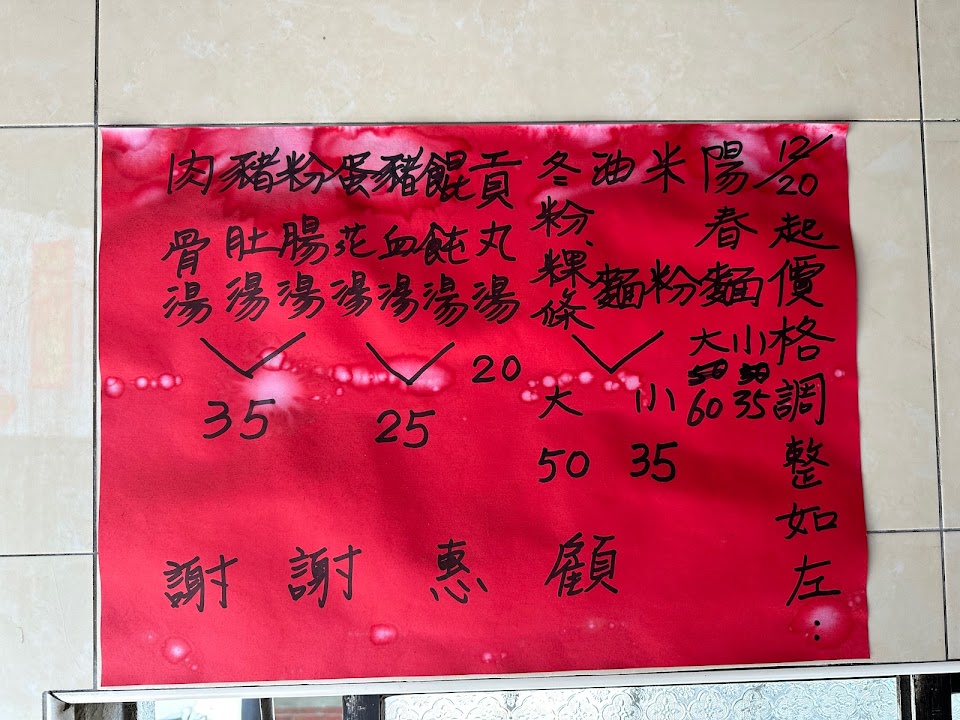 12/20起價格調整如左：
陽春麵
大 小
50 30
60 35
米粉
油麵
冬粉、粿條
大 小
50 35
貢丸湯
20
餛飩湯
豬血湯
蛋花湯
25
粉腸湯
豬肚湯
肉骨湯
35
謝謝惠顧